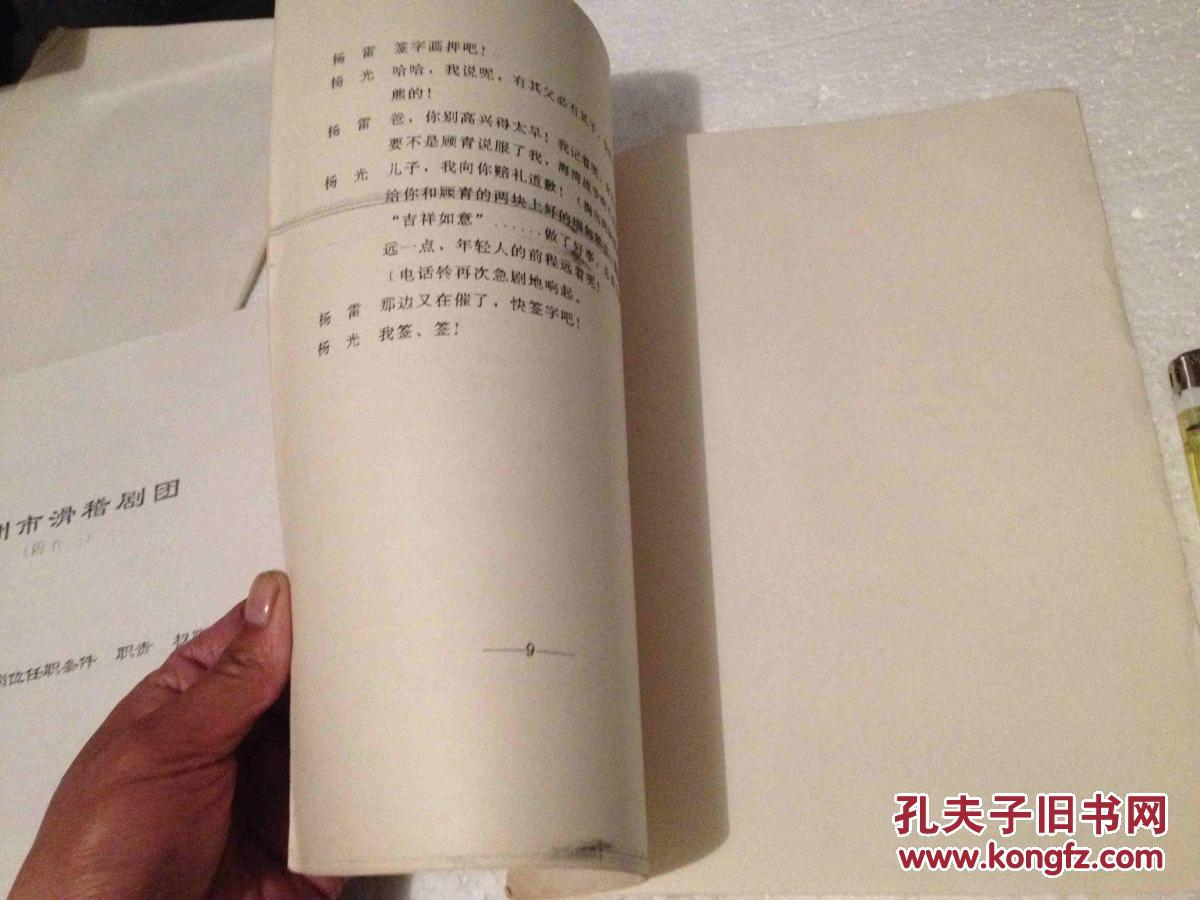 杨 雷 签字画押吧！
杨 光 哈哈，我说呢，有其父必有其子，
熊的！
杨 雷 爸，你别高兴得太早！我记着呢，
要不是顾青说服了我，海湾战争
杨 光 儿子，我向你赔礼道歉！（掏出
给你和顾青的两块上好的
“吉祥如意”……做了好事，
远一点，年轻人的前程远着呢！
〔电话铃再次急剧地响起。
杨 雷 那边又在催了，快签字吧！
杨 光 我签、签！
9
州市滑稽剧团
岗位任职条件 职责
孔夫子旧书网
www.kongfz.com